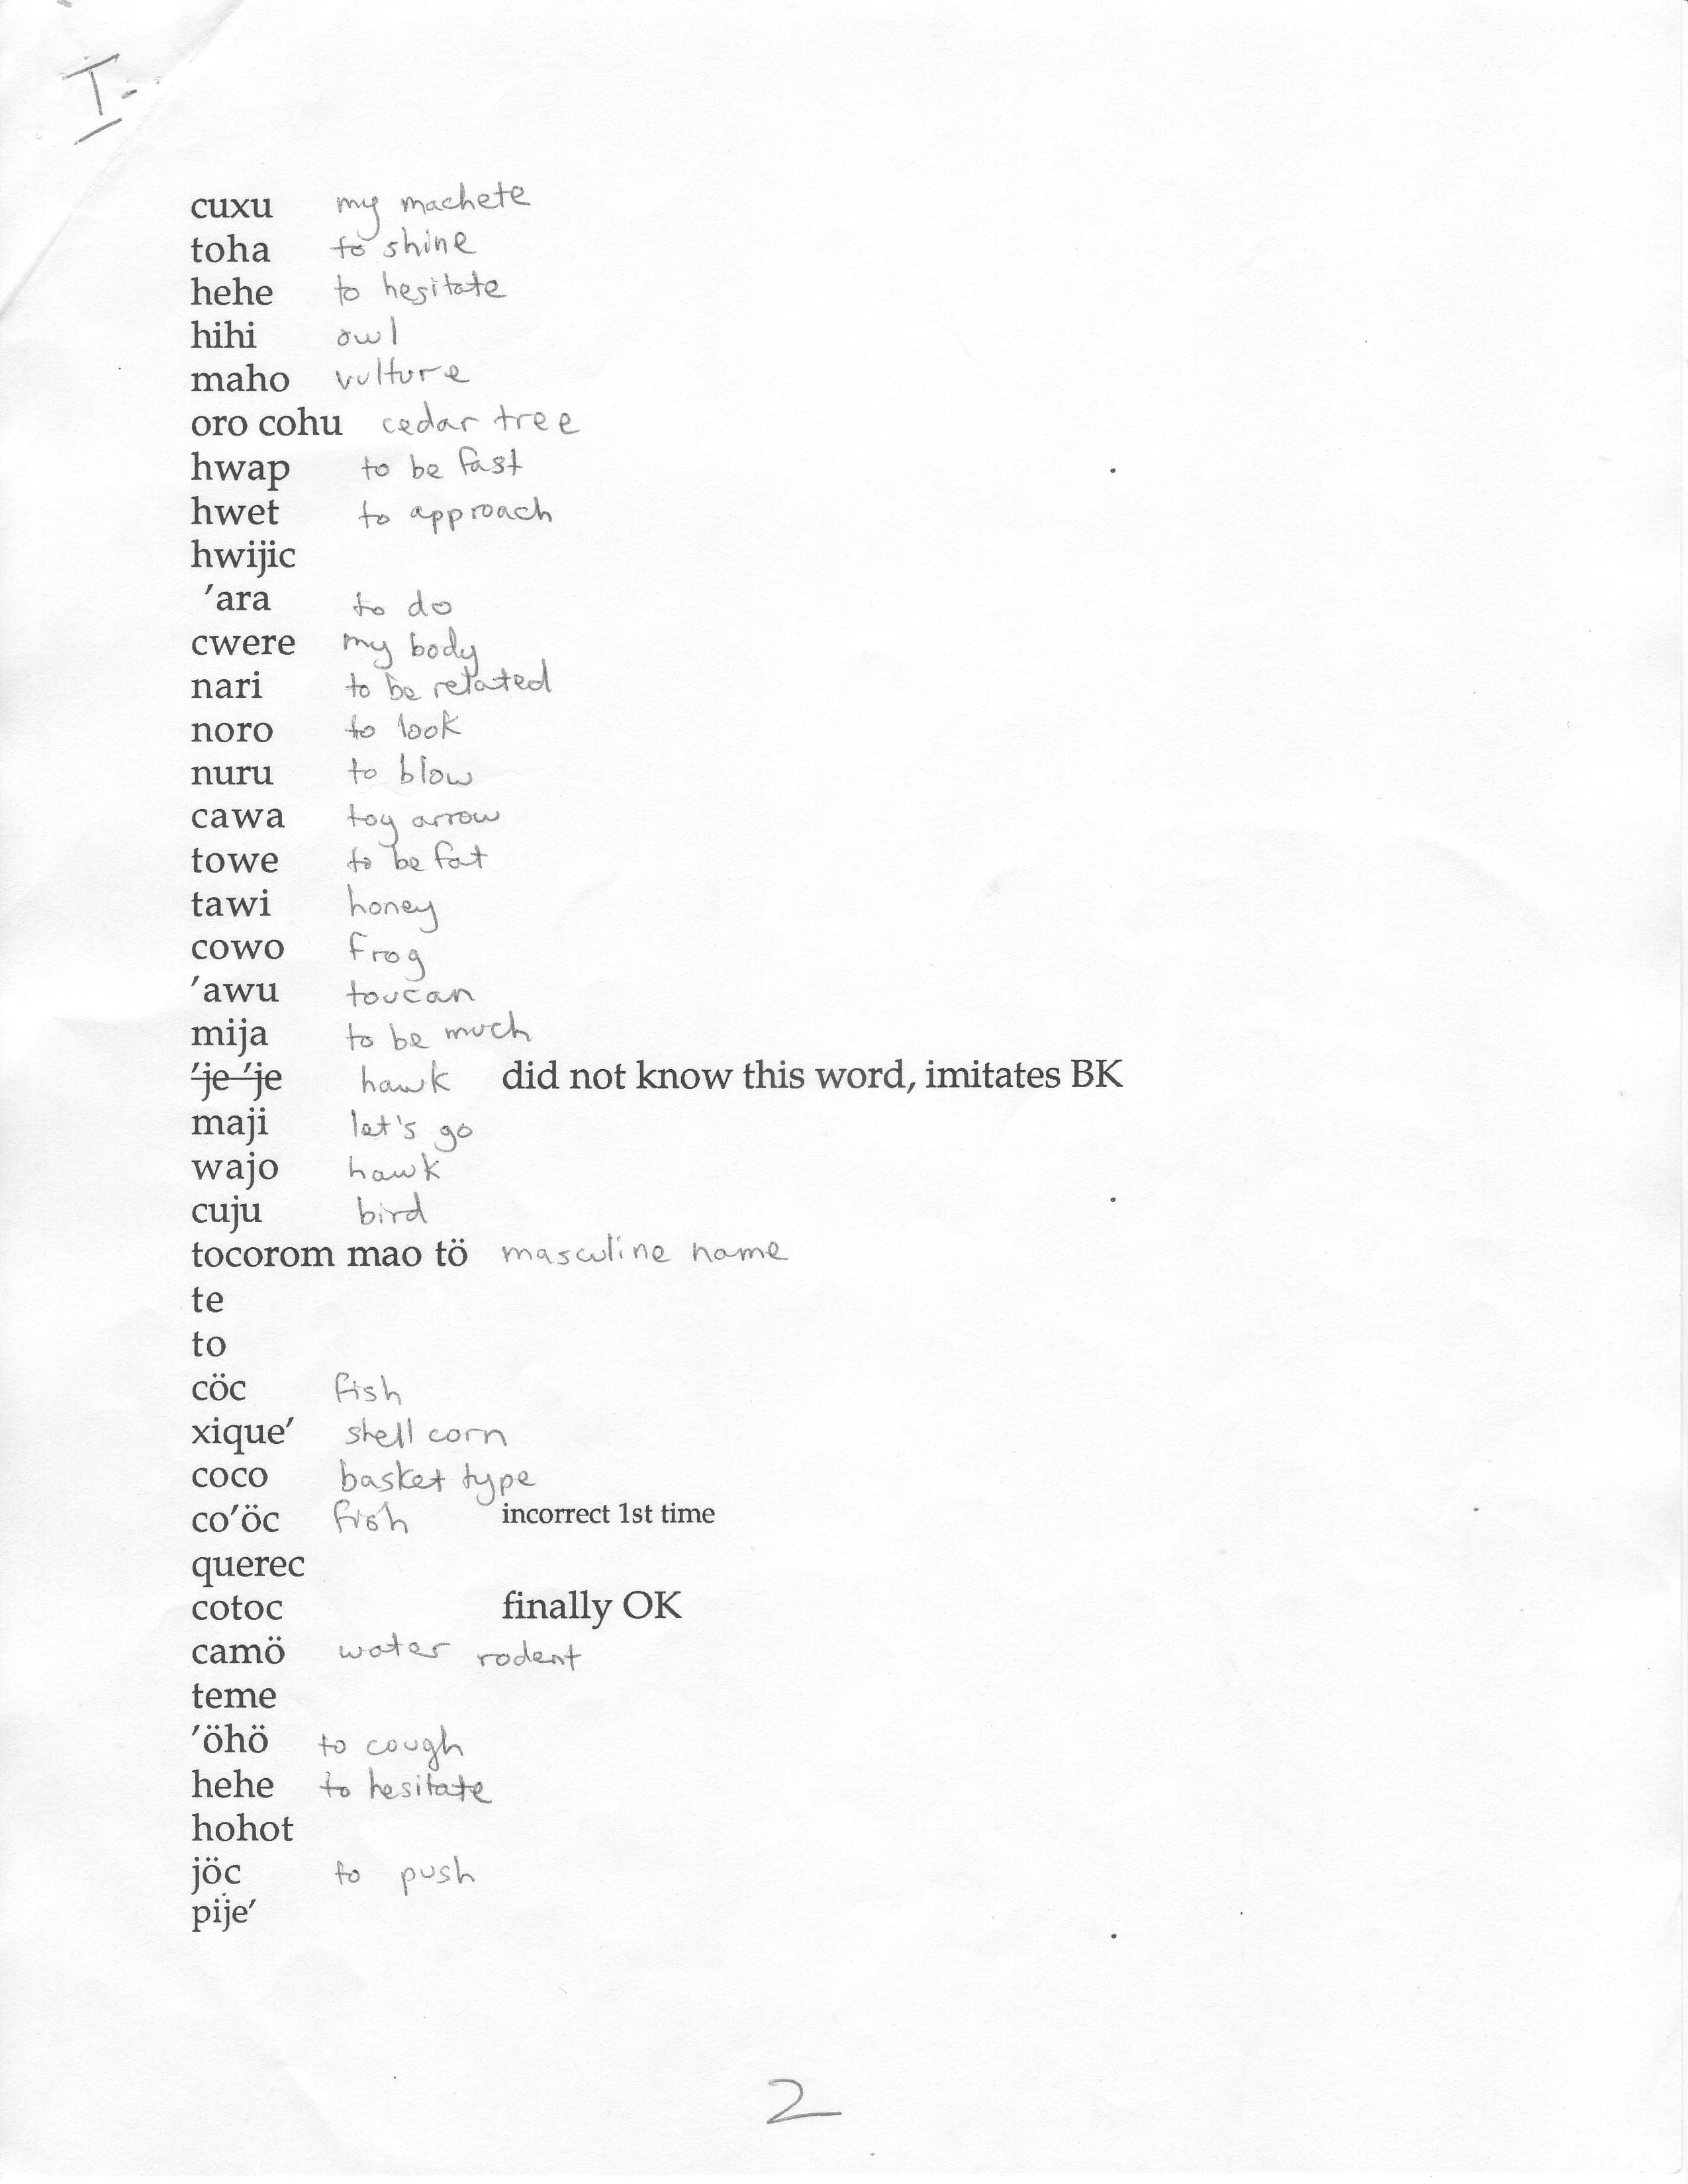 I-
cuxu my machete
toha to shine
hehe to hesitate
hihi owl
maho vulture
oro cohu cedar tree
hwap to be fast
hwet to approach
hwijic
'ara to do
cwere my body
nari to be related
noro to look
nuru to blow
cawa toy arrow
towe to be fat
tawi honey
cowo frog
'awu toucan
mija to be much
'je 'je hawk did not know this word, imitates BK
maji let's go
wajo hawk
cuju bird
tocorom mao tö masculine name
te
to
cöc fish
xique' shell corn
coco basket type
co'öc fish incorrect 1st time
querec
cotoc finally OK
camö water rodent
teme
'öhö to cough
hehe to hesitate
hohot
jöc to push
pije'
2